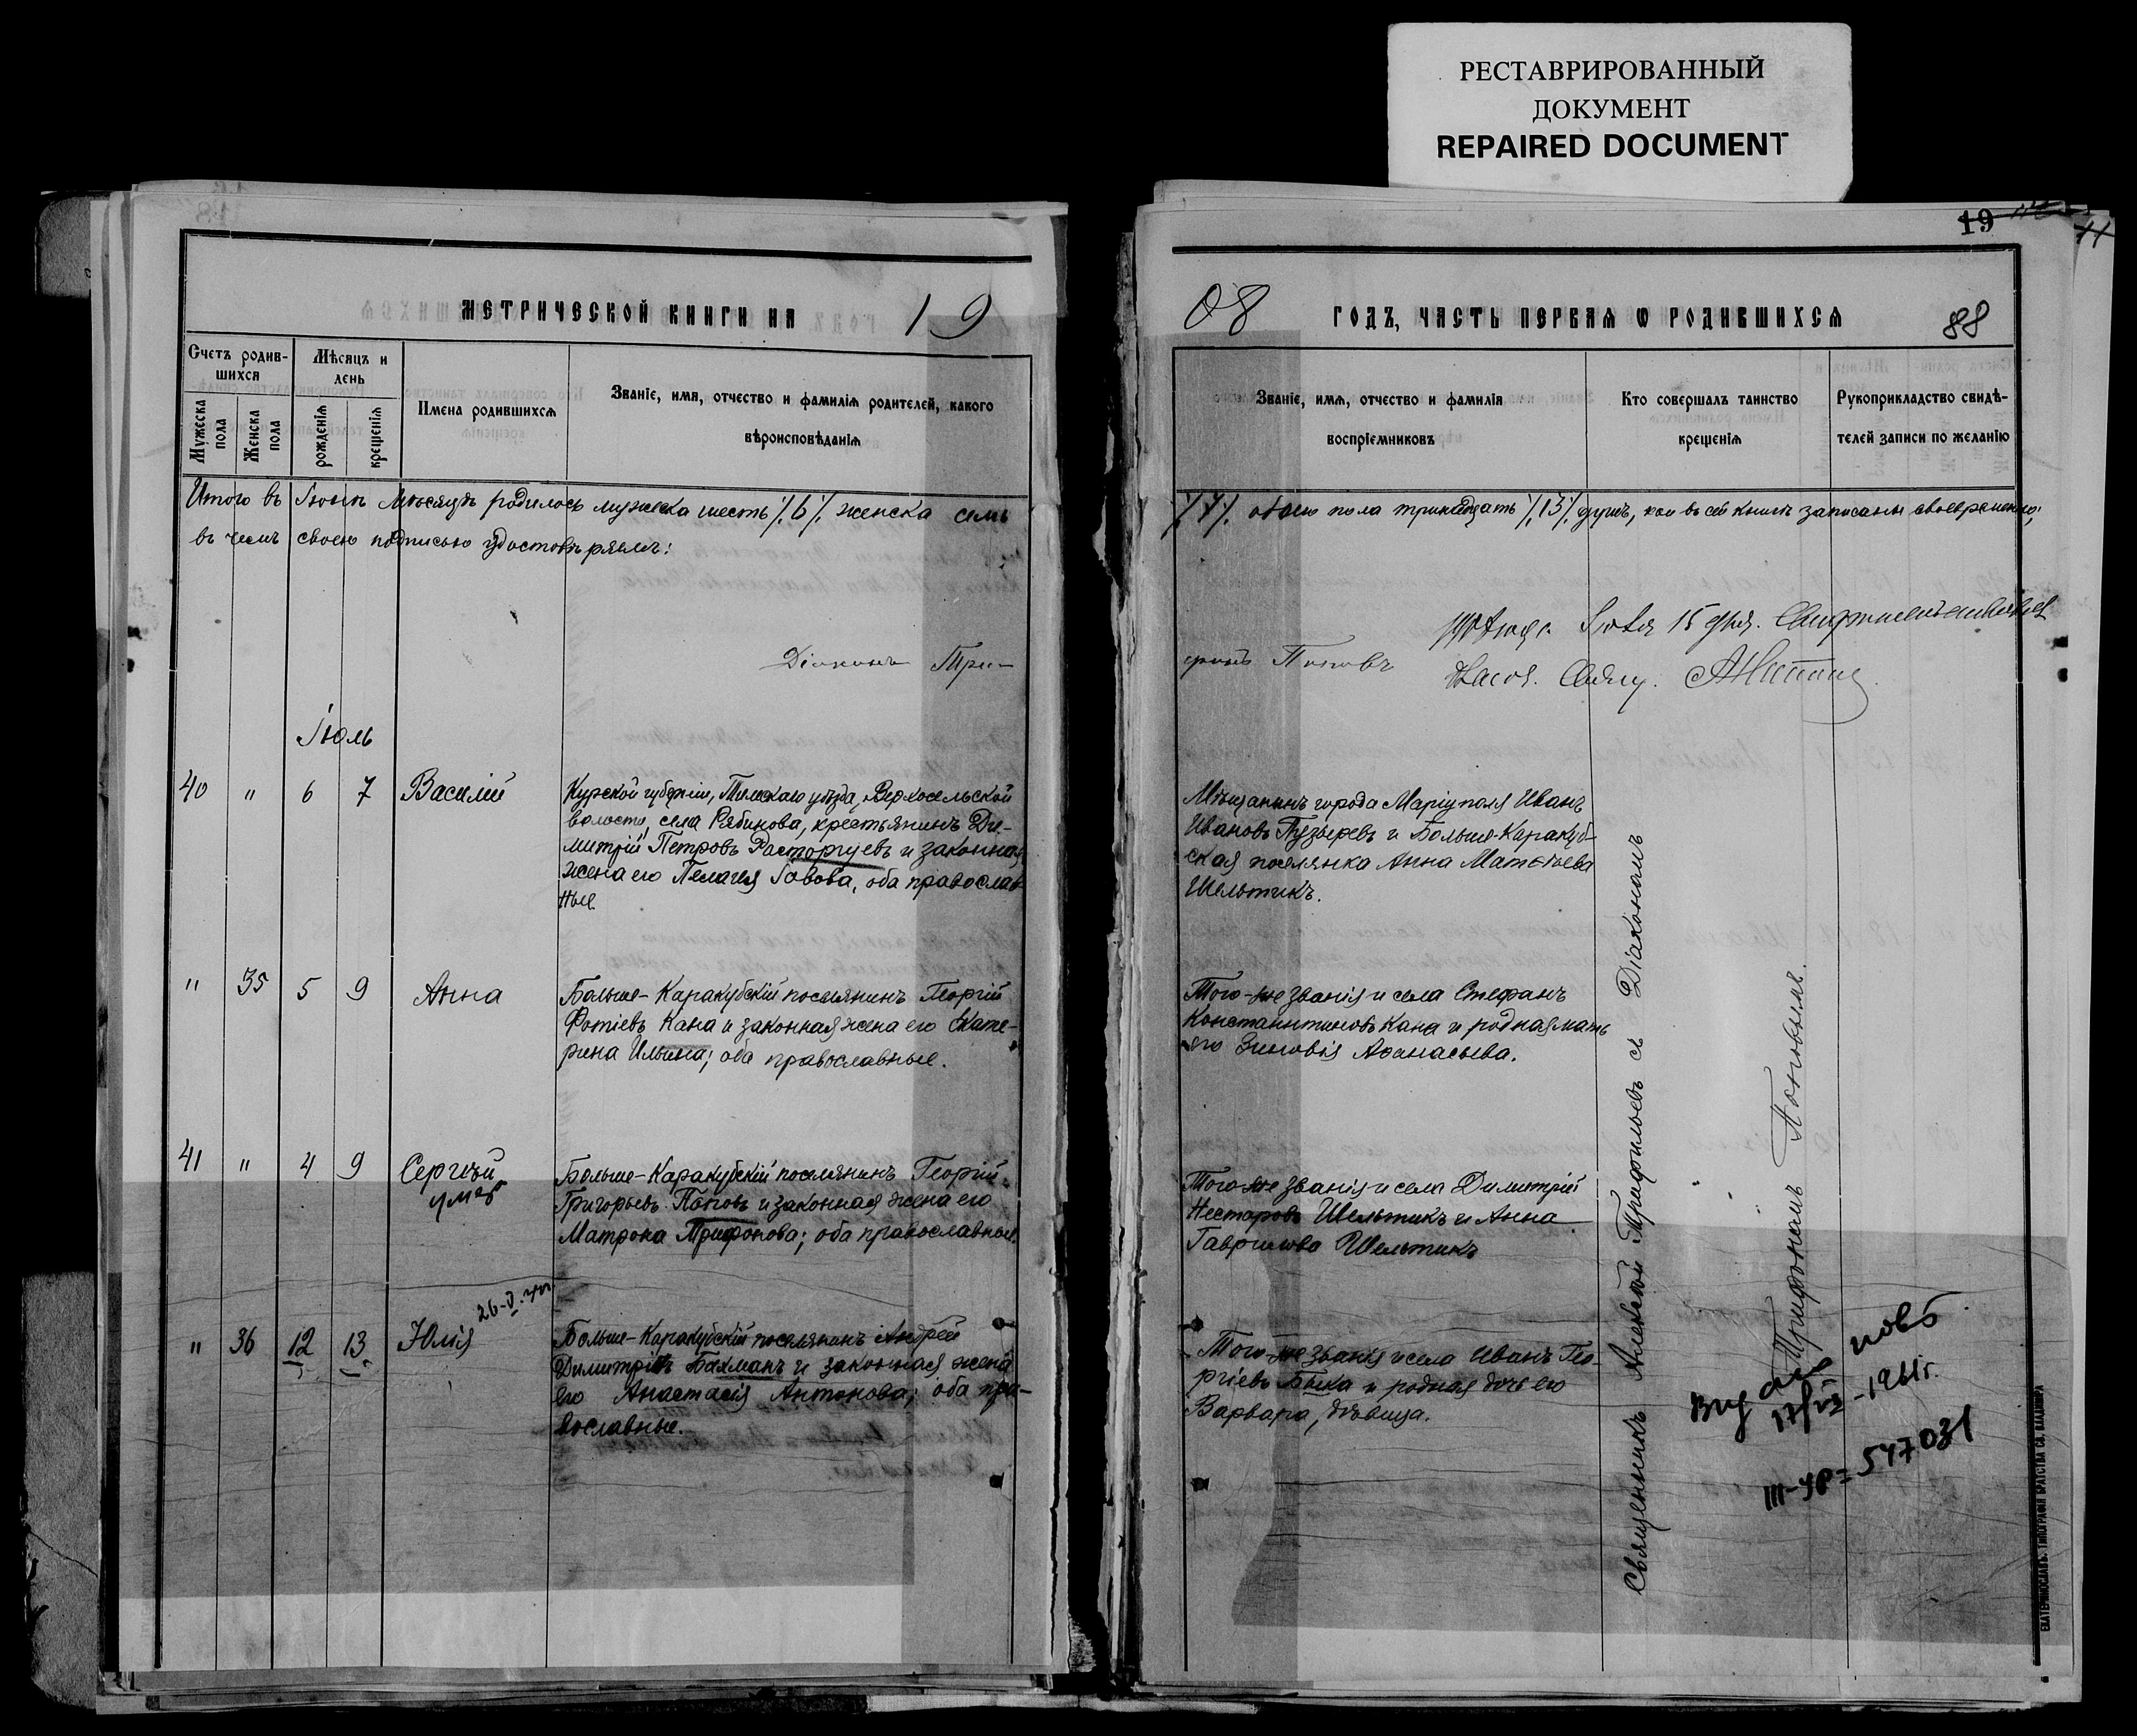 РЕСТАВРИРОВАННЫЙ
ДОКУМЕНТ
REPAIRED DOCUMENT
МЕТРИЧЕСКОЙ КНИГИ НА 19
Счетъ родив-
шихся
Мѣсяцъ и
день
Мужеска
пола
Женска
пола
рожденія
крещенія
Имена родившихся
Званіе, имя, отчество и фамилія родителей, какого
вѣроисповѣданія
Итого въ Іюнѣ мѣсяцѣ родилось мужеска шесть /6/ женска семь
въ чемъ своею подписью удостовѣряемъ:
Діаконъ Три-
Іюль
40 " 6 7 Василій
Курской губерніи, Тимскаго уѣзда, Верхосельской
волости, села Рябинова, крестьянинъ Ди-
митрій Петровъ Расторгуевъ и законная
жена его Пелагея Іовова, оба православ-
ные.
" 35 5 9 Анна
Больше-Каракубскій поселянинъ Георгій
Фотіевъ Кана и законная жена его Екате-
рина Ильина; оба православные.
41 " 4 9 Сергѣй
умер
Больше-Каракубскій поселянинъ Георгій
Григорьевъ Поповъ и законная жена его
Матрона Трифонова; оба православные.
" 36 12 13 Юлія
26-V
Больше-Каракубскій поселянинъ Андрей
Димитріевъ Бахманъ и законная жена
его Анастасія Антонова; оба пра-
вославные.
19
08 ГОДЪ, ЧАСТЬ ПЕРВАЯ О РОДИВШИХСЯ 88
Званіе, имя, отчество и фамилія
воспріемниковъ
Кто совершалъ таинство
крещенія
Рукоприкладство свидѣ-
телей записи по желанію
/7/ обоего пола тринадцать /13/ душъ, кои въ сей книгѣ записаны своевременно;
Іюля 15 дня.
фонъ Поповъ
Мѣщанинъ города Маріуполя Иванъ
Ивановъ Пузыревъ и Больше-Каракуб-
ская поселянка Анна Матѳѣева
Шельтикъ.
Того-же званія и села Стефанъ
Константиновъ Кана и родная мать
его Зиновія Аѳанасьева.
Того-же званія и села Димитрій
Несторовъ Шельтикъ и Анна
Гаврилова Шельтикъ
Того-же званія и села Иванъ Гео-
ргіевъ Быка и родная дочь его
Варвара, дѣвица.
Священникъ Алексѣй Трифильевъ съ Діакономъ
Трифономъ Поповымъ.
повт
1961г.
III-УР= 547031
ЕКАТЕРИНОСЛАВЪ. ТИПОГРАФІЯ БРАТСТВА СВ. ВЛАДИМІРА